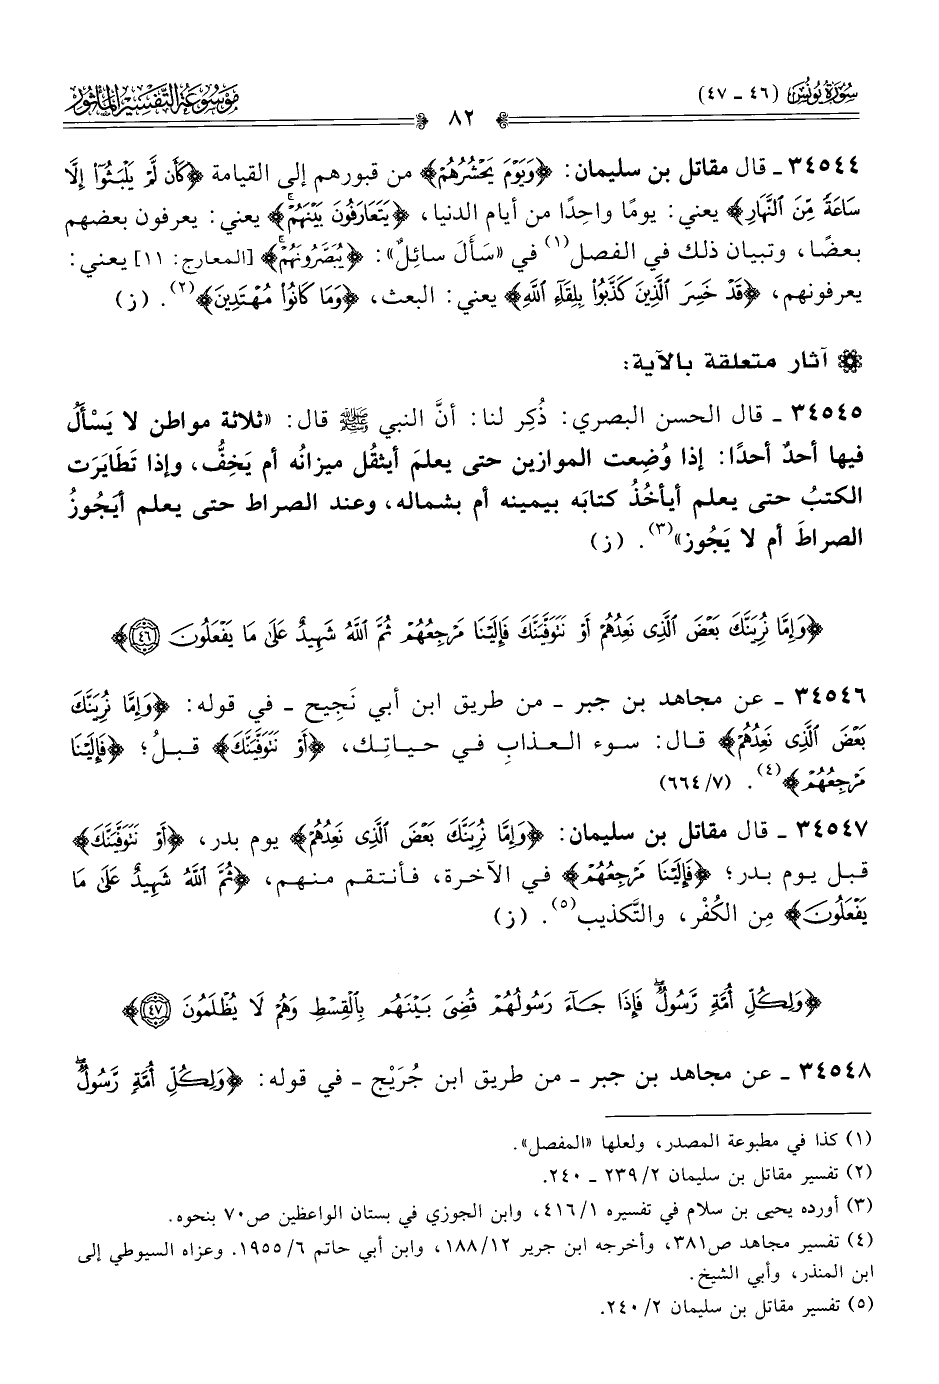 سُورَةُ يُونُسَ (٤٦ - ٤٧)
٨٢
مَوْسُوعَة التَّفْسِير المَأْثُور
٣٤٥٤٤ ـ قال مقاتل بن سليمان: ﴿وَيَوْمَ يَحْشُرُهُمْ﴾ من قبورهم إلى القيامة ﴿كَأَن لَّمْ يَلْبَثُوٓا۟ إِلَّا
سَاعَةً مِّنَ ٱلنَّهَارِ﴾ يعني: يومًا واحِدًا من أيام الدنيا، ﴿يَتَعَارَفُونَ بَيْنَهُمْۚ﴾ يعني: يعرفون بعضهم
بعضًا، وتبيان ذلك في الفصل(١) في «سَأَلَ سائِلٌ»: ﴿يُبَصَّرُونَهُمْۚ﴾ [المعارج: ١١] يعني:
يعرفونهم، ﴿قَدْ خَسِرَ ٱلَّذِينَ كَذَّبُوا۟ بِلِقَآءِ ٱللَّهِ﴾ يعني: البعث، ﴿وَمَا كَانُوا۟ مُهْتَدِينَ﴾(٢). (ز)
آثار متعلقة بالآية:
٣٤٥٤٥ ـ قال الحسن البصري: ذُكِر لنا: أنَّ النبي ﷺ قال: «ثلاثة مواطن لا يَسْأَلُ
فيها أحدٌ أحدًا: إذا وُضِعت الموازين حتى يعلمَ أيثقُل ميزانُه أم يَخِفُّ، وإذا تَطَايَرَت
الكتبُ حتى يعلم أيأخُذُ كتابَه بيمينه أم بشماله، وعند الصراط حتى يعلم أيَجُوزُ
الصراطَ أم لا يَجُوز»(٣). (ز)
﴿وَإِمَّا نُرِيَنَّكَ بَعْضَ ٱلَّذِى نَعِدُهُمْ أَوْ نَتَوَفَّيَنَّكَ فَإِلَيْنَا مَرْجِعُهُمْ ثُمَّ ٱللَّهُ شَهِيدٌ عَلَىٰ مَا يَفْعَلُونَ ٤٦﴾
٣٤٥٤٦ ـ عن مجاهد بن جبر ـ من طريق ابن أبي نَجِيح ـ في قوله: ﴿وَإِمَّا نُرِيَنَّكَ
بَعْضَ ٱلَّذِى نَعِدُهُمْ﴾ قال: سوء العذابِ في حياتِك، ﴿أَوْ نَتَوَفَّيَنَّكَ﴾ قبلُ؛ ﴿فَإِلَيْنَا
مَرْجِعُهُمْ﴾(٤). (٧/ ٦٦٤)
٣٤٥٤٧ ـ قال مقاتل بن سليمان: ﴿وَإِمَّا نُرِيَنَّكَ بَعْضَ ٱلَّذِى نَعِدُهُمْ﴾ يوم بدر، ﴿أَوْ نَتَوَفَّيَنَّكَ﴾
قبل يوم بدر؛ ﴿فَإِلَيْنَا مَرْجِعُهُمْ﴾ في الآخرة، فأنتقم منهم، ﴿ثُمَّ ٱللَّهُ شَهِيدٌ عَلَىٰ مَا
يَفْعَلُونَ﴾ مِن الكُفْر، والتَّكذيب(٥). (ز)
﴿وَلِكُلِّ أُمَّةٍ رَّسُولٌۖ فَإِذَا جَآءَ رَسُولُهُمْ قُضِىَ بَيْنَهُم بِٱلْقِسْطِ وَهُمْ لَا يُظْلَمُونَ ٤٧﴾
٣٤٥٤٨ ـ عن مجاهد بن جبر ـ من طريق ابن جُرَيْج ـ في قوله: ﴿وَلِكُلِّ أُمَّةٍ رَّسُولٌۖ
(١) كذا في مطبوعة المصدر، ولعلها «المفصل».
(٢) تفسير مقاتل بن سليمان ٢/ ٢٣٩ ـ ٢٤٠.
(٣) أورده يحيى بن سلام في تفسيره ١/ ٤١٦، وابن الجوزي في بستان الواعظين ص٧٠ بنحوه.
(٤) تفسير مجاهد ص٣٨١، وأخرجه ابن جرير ١٢/ ١٨٨، وابن أبي حاتم ٦/ ١٩٥٥. وعزاه السيوطي إلى
ابن المنذر، وأبي الشيخ.
(٥) تفسير مقاتل بن سليمان ٢/ ٢٤٠.